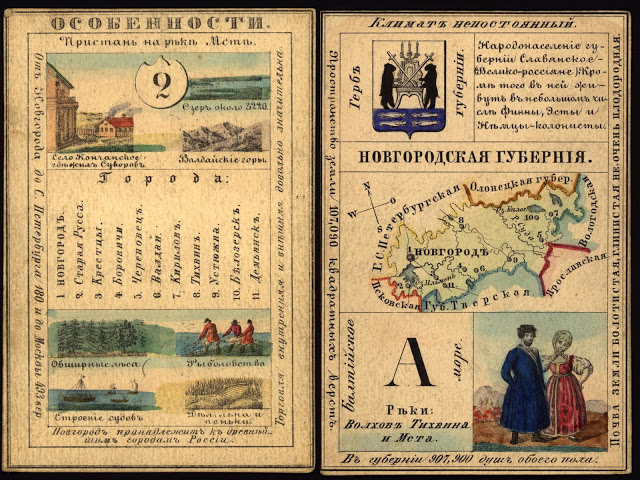 ОСОБЕННОСТИ.
Пристань на рѣкѣ Мстѣ.
2
Озеръ около 3220.
Село Кончанское
гдѣ жилъ Суворовъ
Валдайскіе горы
Города:
1 НОВГОРОДЪ.
2 Старая Русса.
3 Крестцы.
4 Боровичи.
5 Череповецъ.
6 Валдай.
7 Кириловъ.
8 Тихвинъ.
9 Устюжна.
10 Бѣлозерскъ.
11 Демьянскъ.
Обширные лѣса
Рыболовство
Строеніе судовъ.
Новгородъ принадлежитъ къ древнѣй
шимъ городамъ Россіи.
Отъ Новгорода до С. Петербурга 160 и до Москвы 433 вер
Торговля внутренняя и внѣшняя довольно значительна.
Климатъ непостоянный.
Гербъ
губерніи.
Народонаселеніе гу-
берніи Славянское
(Велико-россіяне) Кро-
мѣ того въ ней жи-
вутъ въ небольшомъ чи-
слѣ финны, Эсты и
Нѣмцы-колонисты.
НОВГОРОДСКАЯ ГУБЕРНІЯ.
N
W
O
S
Олонецкая губер.
Е. С. Петербургская
Вологодская
НОВГОРОДЪ
Ярославская
Псковская
Губ. Тверская
А
балтійское
море.
Рѣки:
Волховъ Тихвина
и Мста.
Въ губерніи 907,900 душъ обоего пола.
Пространство земли 107,040 квадратныхъ верстъ
Почва земли болотистая, глинистая не-очень плодородная.